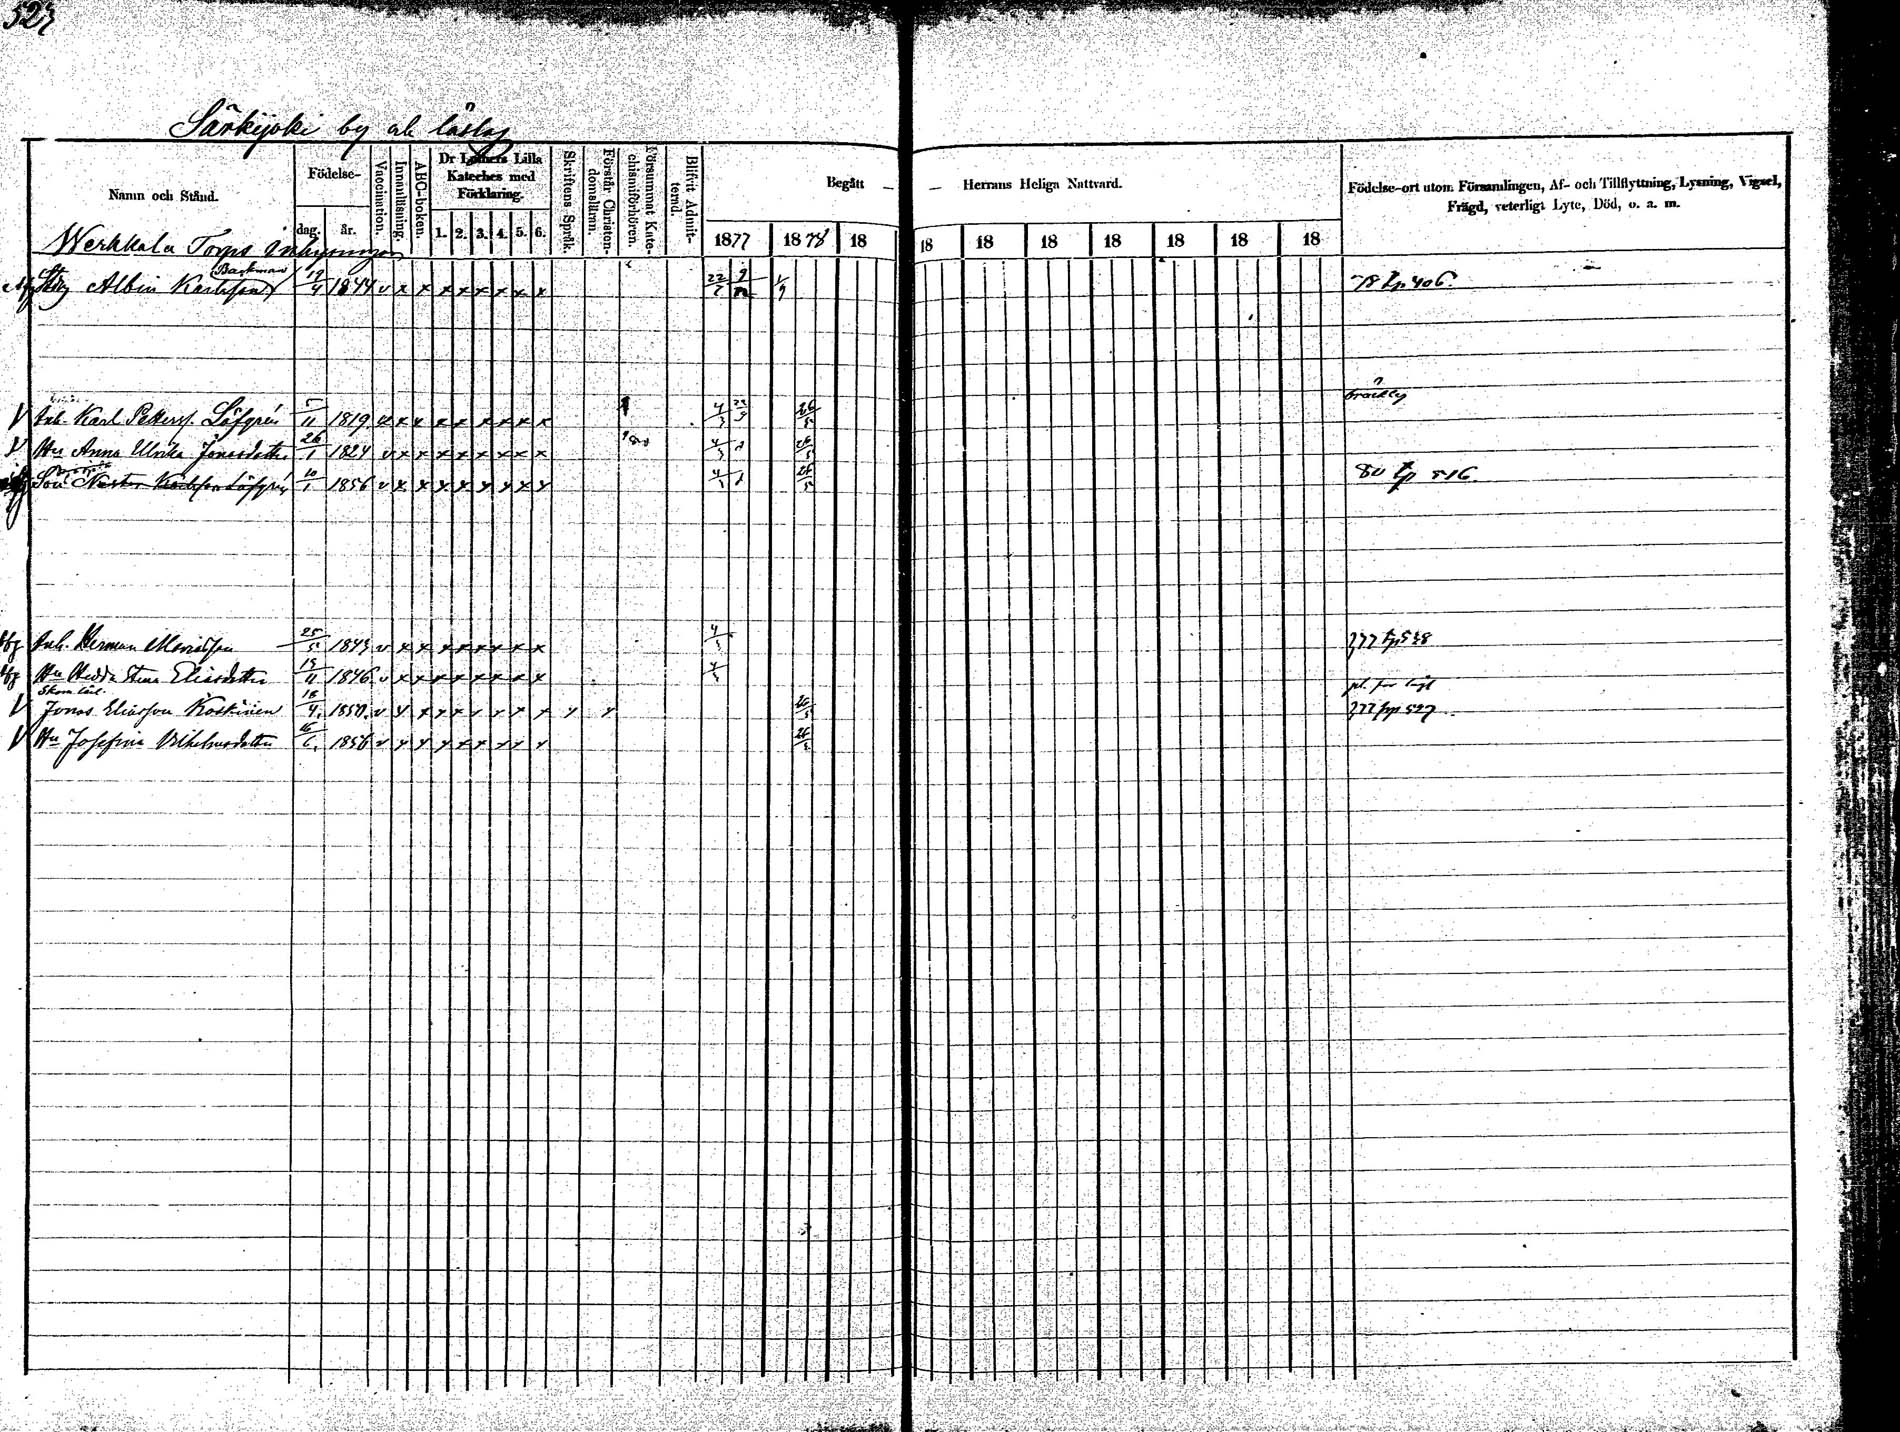 523
Särkijoki by
Namn och Stånd.
Födelse-
dag.
år.
Vaccination.
Innanläsning.
ABC-boken.
Dr Luthers Lilla
Kateches med
Förklaring.
1. 2. 3. 4. 5. 6.
Skriftens Språk.
Förstår Christen-
domsläran.
Försummat Kate-
chismiförhören.
Blifvit Admit-
terad.
Begått — — Herrans Heliga Nattvard.
1877 1878 18 18 18 18 18 18 18 18
Födelse-ort utom Församlingen, Af- och Tillflyttning, Lysning, Vigsel,
Frägd, veterligt Lyte, Död, o. a. m.
Werkkala Torps Inhysningar
Backman
Albin Karlsson 19/4 1844 v x x x x x x x x 22/7 1/9 78 tp 406.
bräcklig
V Inh. Karl Petterss. Löfgrén 5/11 1819 x x x x x x x x 4/3 22/9 26/5
V Hu Anna Ulrika Jonasdotter 26/1 1824 v x x x x x x x x 4/3 26/5
Son Nestor Karlsson Löfgrén 10/1 1856 v x x x x x x x x 4/3 26/5 80 tp 516.
Inh. Herman 25/5 1843 v x x x x x x x x 4/3 377 tp 538
Hu Hedda Stina Eliasdotter 15/11 1846 v x x x x x x x x 4/3
V Jonas Eliasson Koskinen 18/4 1850 v x x x x x x x x x x 26/5 377 tp 527
V Hu Josefina Vilhelmsdotter 16/6 1856 v x x x x x x x x 26/5